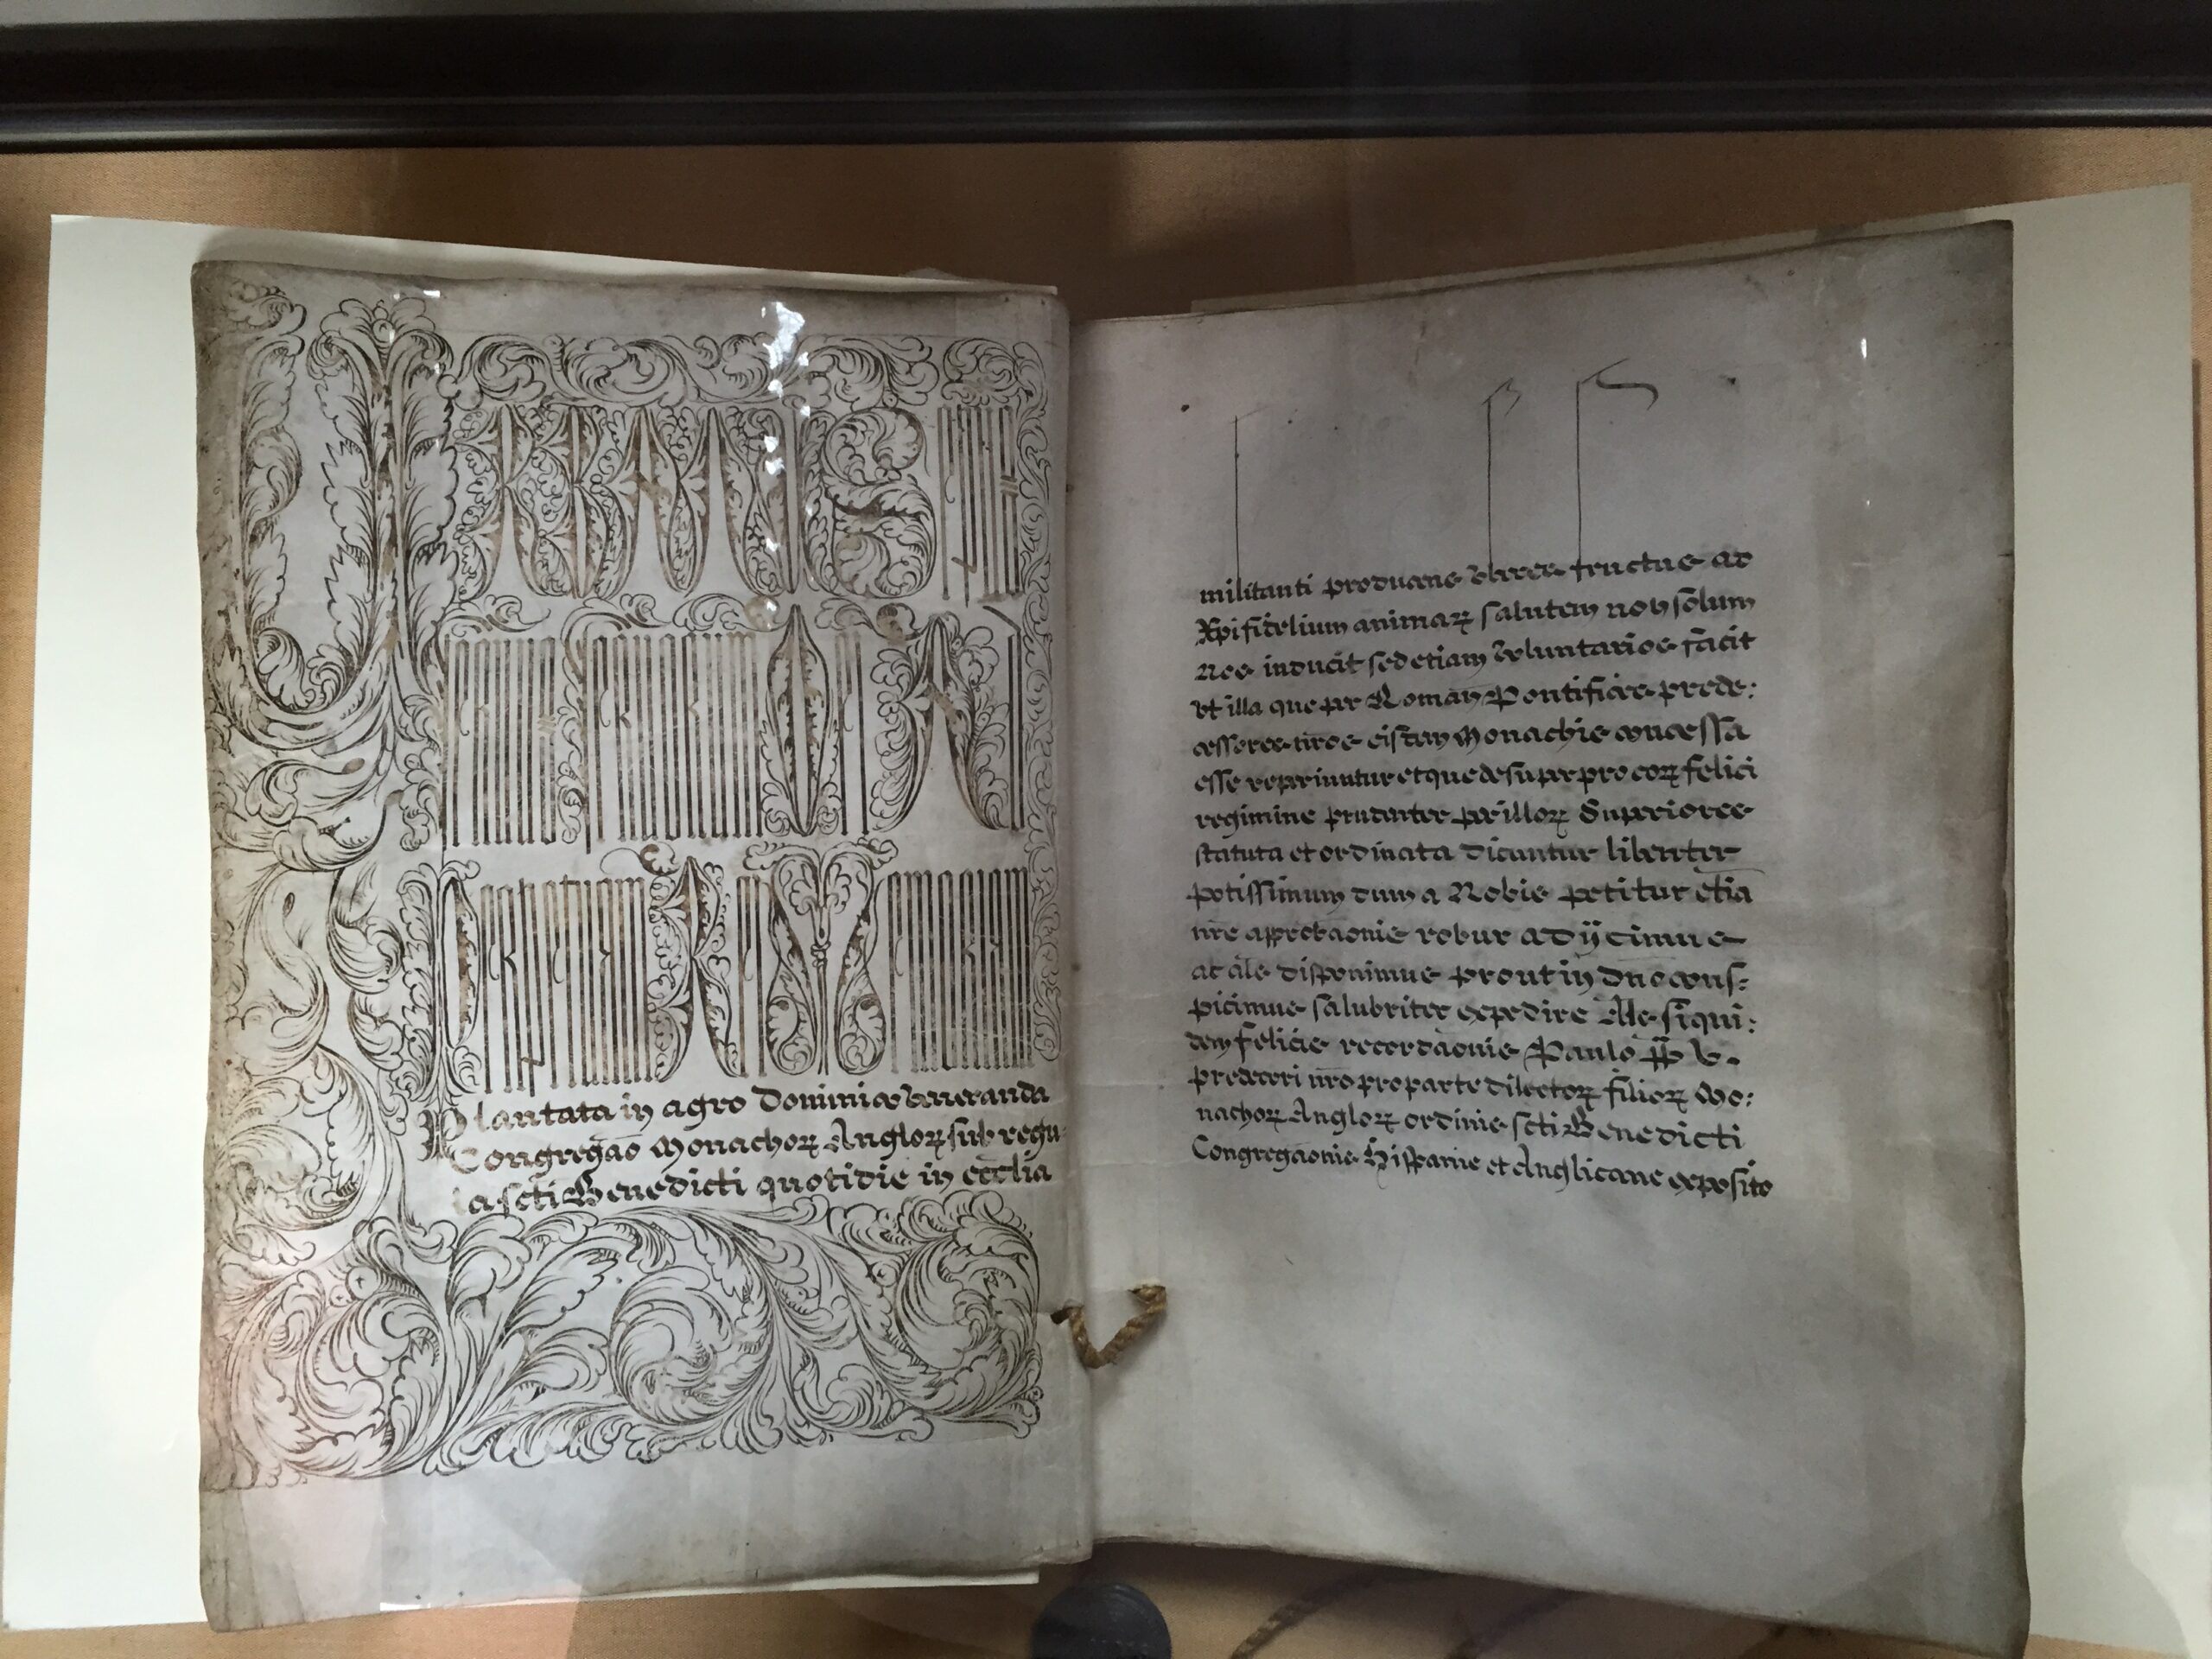 URBANUS Eps
Seruus Seruorum DEI
Ad perpetuam REI Memoriam
Plantata in agro Dominico veneranda
Congregão Monachoꝝ Angloꝝ sub regu
la scti Benedicti quotidie in ecclia
militanti producens vberes fructus ad
Xpifidelium animaꝝ salutem non solum
nos inducit sed etiam voluntarios facit
vt illa que per Roman̄ Pontifices prede:
cessores nros eisdem Monachis concessa
esse reperiuntur et que desuper pro eoꝝ felici
regimine prudenter per illoꝝ Superiores
statuta et ordinata dicuntur libenter
potissimum dum a Nobis petitur etia
nre approbaonis robur adÿcimus
ac als disponimus prout in dno cons:
picimus salubriter expedire Als siqui:
dem felicis recordaonis Paulo PP V.
predceri nro pro parte dilectoꝝ filioꝝ Mo:
nachoꝝ Angloꝝ ordinis scti Benedicti
Congregaonis Hispanie et Anglicane exposito